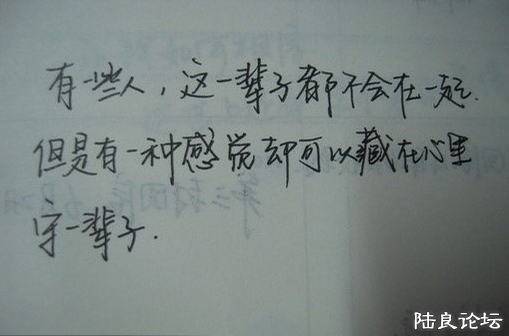 有一些人，这一辈子都不会在一起.
但是有一种感觉却可以藏在心里
守一辈子.
陆良论坛